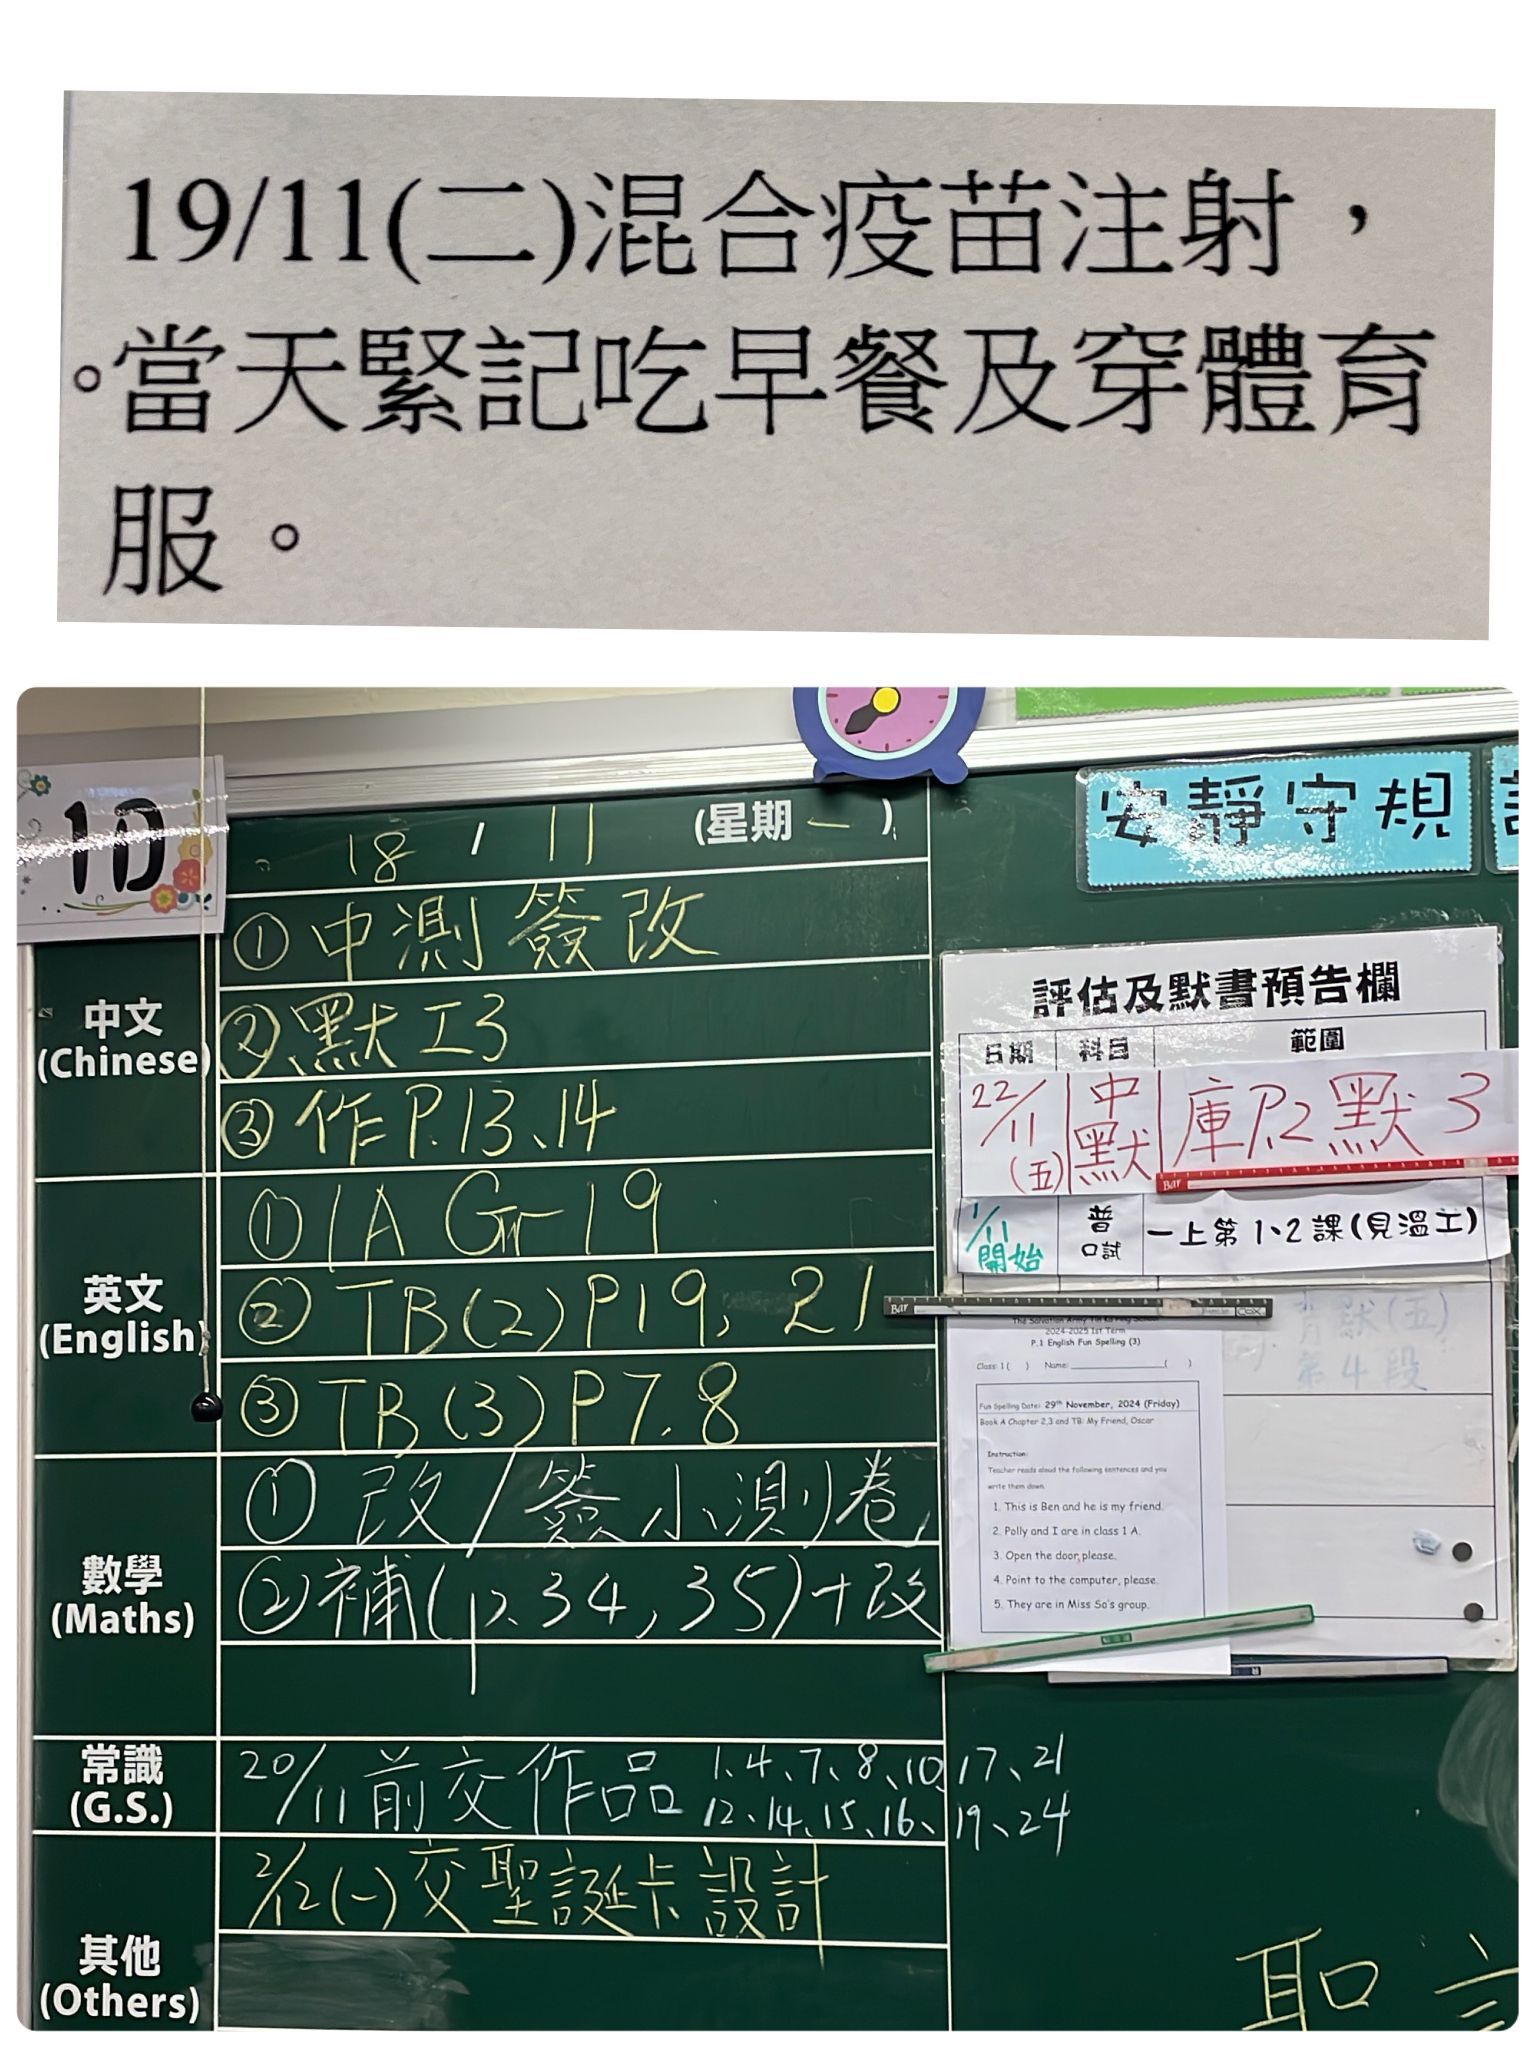 19/11(二)混合疫苗注射，
。當天緊記吃早餐及穿體育
服。
1D
18 / 11 (星期一)
安靜守規
中文
(Chinese)
①中測簽改
②默工3
③作P.13、14
英文
(English)
①1A Gr 19
②TB(2)P19, 21
③TB(3)P7, 8
數學
(Maths)
①改/簽小測卷
②補(p.34, 35)+改
常識
(G.S.)
20/11前交作品 1、4、7、8、10、17、21
12、14、15、16、19、24
其他
(Others)
2/12(一)交聖誕卡設計
評估及默書預告欄
日期 科目 範圍
22/11(五) 中默 庫P.2 默3
1/11開始 普口試 一上第1、2課(見溫工)
Bar
Bar
默(五)
第4段
The Salvation Army Tin Ka Ping School
2024-2025 1st Term
P.1 English Fun Spelling (3)
Class: 1 ( ) Name: ( )
Fun Spelling Date: 29th November, 2024 (Friday)
Book A Chapter 2,3 and TB: My Friend, Oscar
Instruction:
Teacher reads aloud the following sentences and you
write them down.
1. This is Ben and he is my friend.
2. Polly and I are in class 1 A.
3. Open the door, please.
4. Point to the computer, please.
5. They are in Miss So's group.